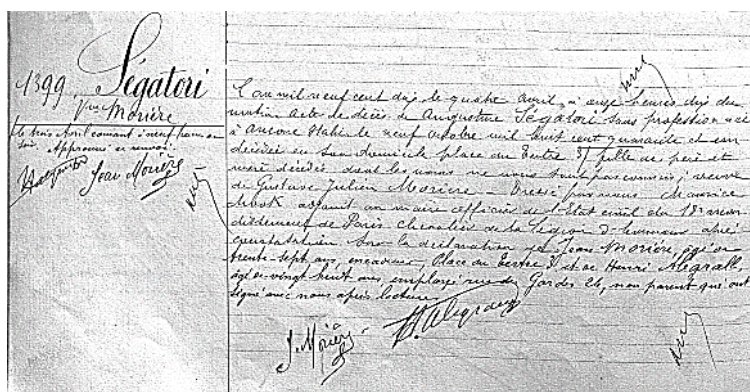 1399
Ségatori
Vve Morière
le trois Avril courant à neuf heures du
soir. Approuvé ce renvoi.
Jean Morière
L'an mil neuf cent dix le quatre avril, à onze heures dix du
matin Acte de décès de Augustine Ségatori sans profession née
à Ancone Italie le neuf octobre mil huit cent quarante et un
décédée en son domicile place du Tertre 3, fille de père et
mère décédés dont les noms ne nous sont pas connus; veuve
de Gustave Julien Morière - Dressé par nous Maurice
adjoint au maire officier de l'Etat civil du 18e arron
dissement de Paris chevalier de la Légion d'honneur après
constatation sur la déclaration de Jean Morière, âgé de
trente-sept ans, encadreur, Place du Tertre 3 et de Henri Alégrall,
âgé de vingt huit ans, employé rue des Gardes 26, non parent qui ont
signé avec nous après lecture
J. Morière